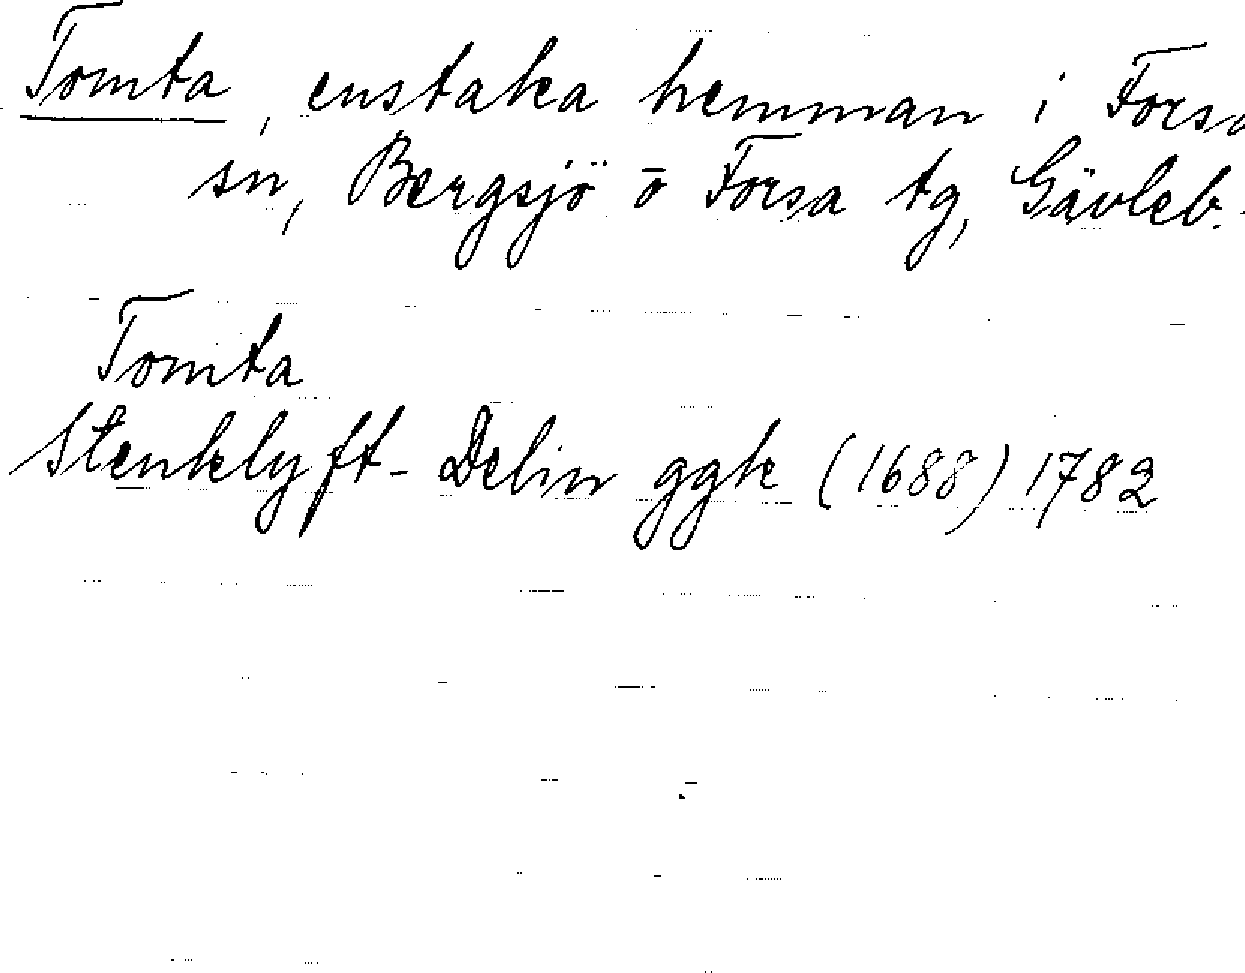 Tomta, enstaka hemman i Forsa
sn, Bergsjö o Forsa tg, Gävleb.
Tomta
Stenklyft- Delin ggk (1688) 1782